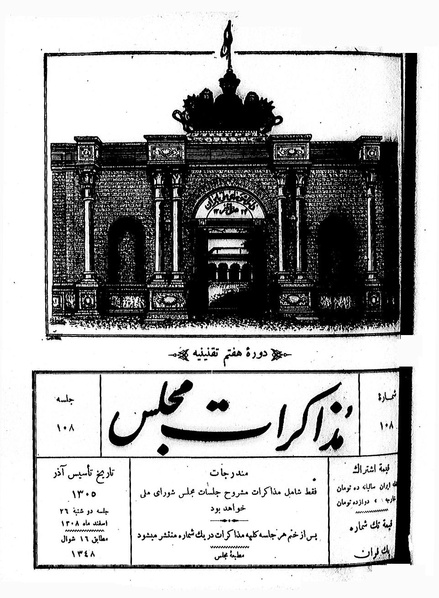 دورهٔ هفتم تقنینیه
مذاکرات مجلس
شمارهٔ
۱۰۸
جلسه
۱۰۸
قیمهٔ اشتراك
ایران سالیانه ده تومان
خارجه » دوازده تومان
قیمهٔ تك شماره
یك قران
مندرجات
فقط شامل مذاکرات مشروح جلسات مجلس شورای ملی
خواهد بود
پس از ختم هر جلسه کلیه مذاکرات در یك شماره منتشر میشود
مطبعهٔ مجلس
تاریخ تأسیس آذر
۱۳۰۵
جلسه دو شنبهٔ ۲۶
اسفند ماه ۱۳۰۸
مطابق ۱۶ شوال
۱۳۴۸